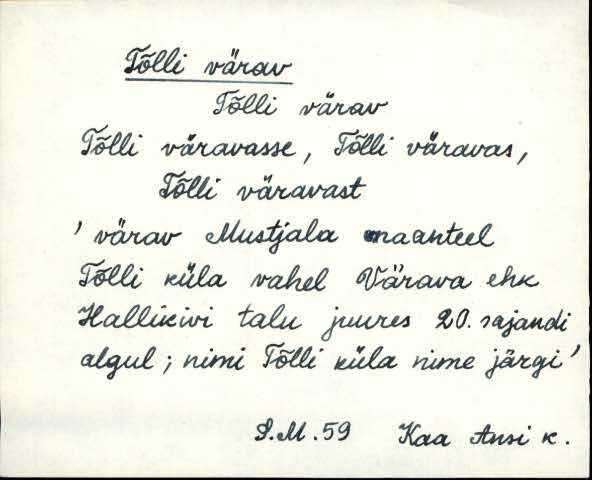 Tõlli värav
Tõlli värav
Tõlli väravasse, Tõlli väravas,
Tõlli väravast
' värav Mustjala maanteel
Tõlli küla vahel Värava ehk
Hallikivi talu juures 20. sajandi
algul; nimi Tõlli küla nime järgi'
S.M. 59 Kaa Ansi k.